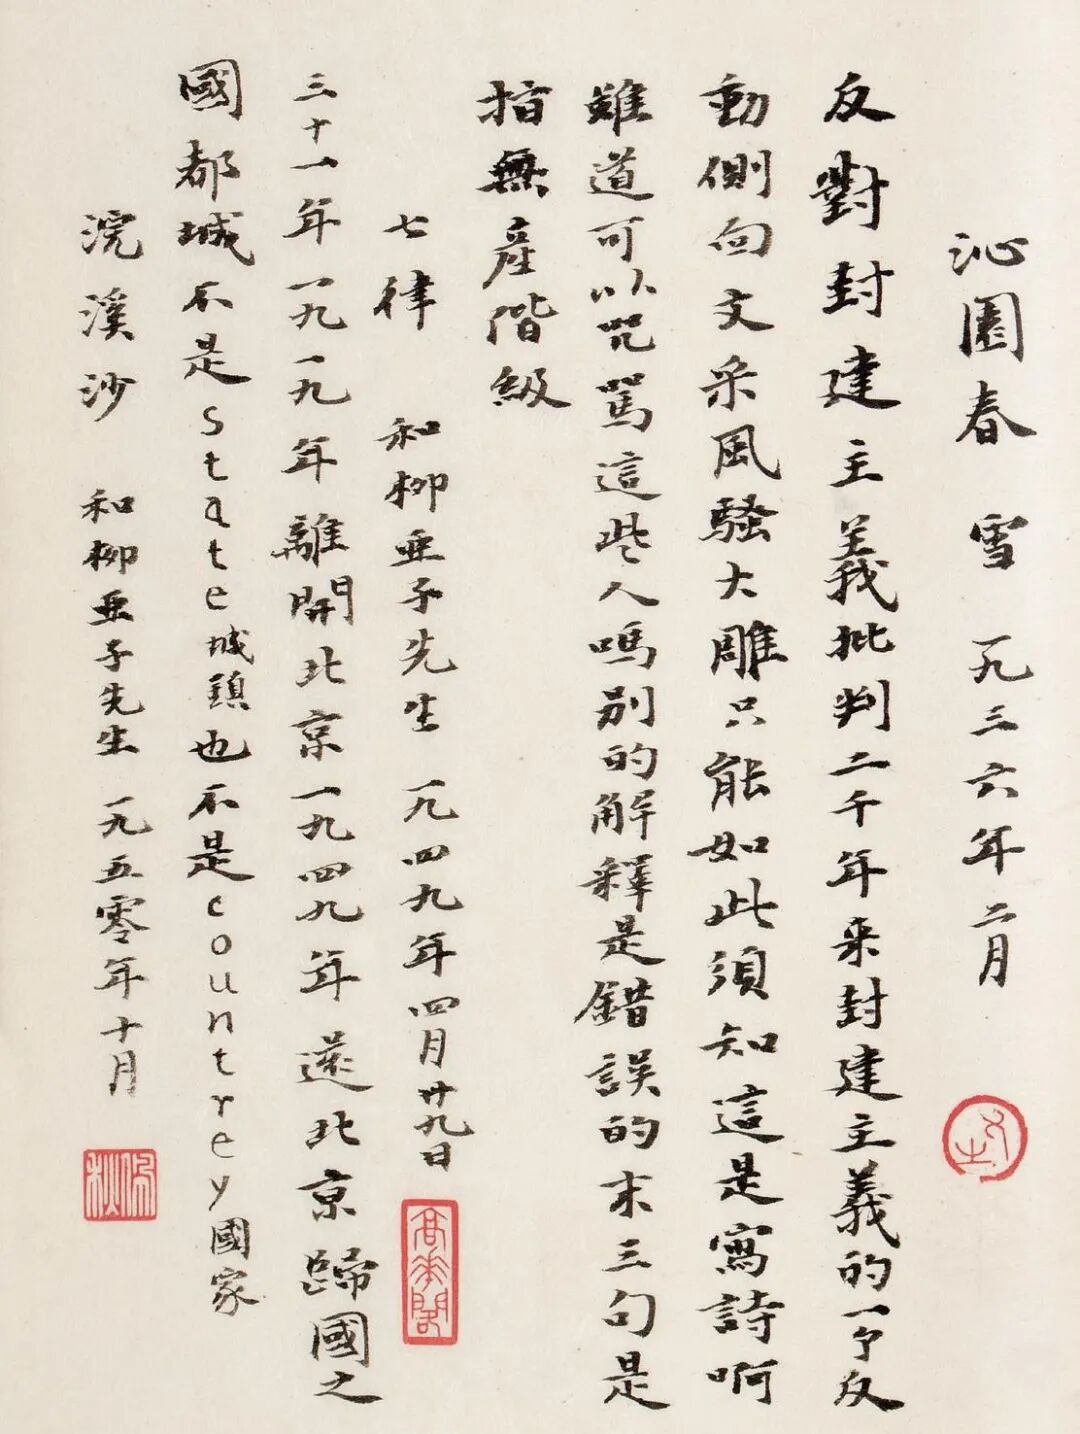 沁園春 雪 一九三六年二月
反對封建主義批判二千年来封建主義的一个反
動側面文采風騷大雕只能如此須知這是寫詩啊
難道可以咒罵這些人嗎別的解釋是錯誤的末三句是
指無産階級
七律 和柳亜子先生 一九四九年四月廿九日
三十一年一九一九年離開北京一九四九年還北京歸國之
國都城不是State城鎮也不是countrey國家
浣溪沙 和柳亜子先生 一九五零年十月